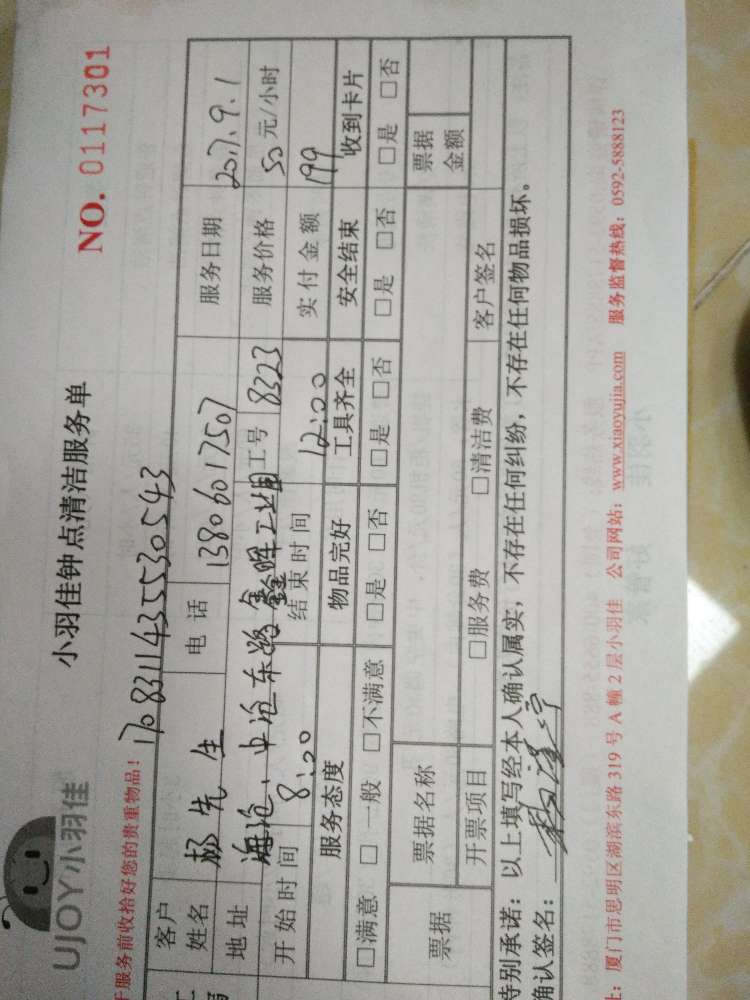 UJOY小羽佳
小羽佳钟点清洁服务单
NO. 0117301
于服务前收拾好您的贵重物品！
17083114355530543
客户姓名 杨先生 电话 13806017507 服务日期 2017.9.1
地址 海沧、中沧东路鑫晖工业园 工号 8323 服务价格 50元/小时
开始时间 8:00 结束时间 12:00 实付金额 199
服务态度 物品完好 工具齐全 安全结束 收到卡片
□满意 □一般 □不满意 □是 □否 □是 □否 □是 □否 □是 □否
票据 票据名称 票据金额
开票项目 □服务费 □清洁费 客户签名
特别承诺：以上填写经本人确认属实，不存在任何纠纷，不存在任何物品损坏。
确认签名：
址：厦门市思明区湖滨东路319号A幢2层小羽佳 公司网站：www.xiaoyujia.com 服务监督热线：0592-5888123